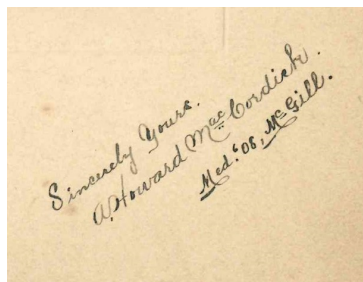 Sincerely Yours.
A. Howard MacCordick.
Med. '08, McGill.